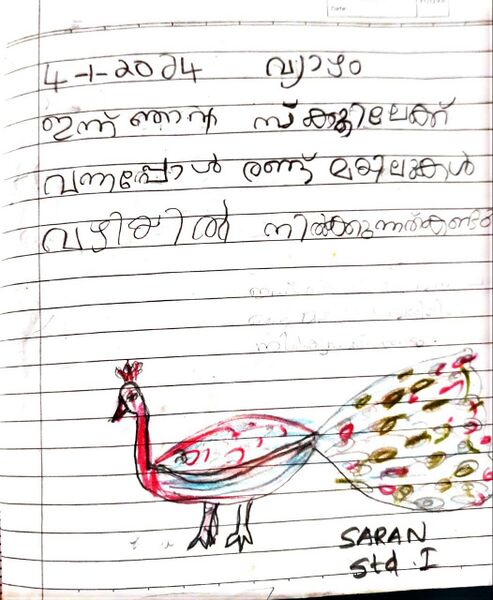 4-1-2024 വ്യാഴം
ഇന്ന് ഞാൻ സ്കൂളിലേക്ക്
വന്നപ്പോൾ രണ്ട് മയിലുകൾ
വഴിയിൽ നിൽക്കുന്നത്കണ്ടു
SARAN
Std. I